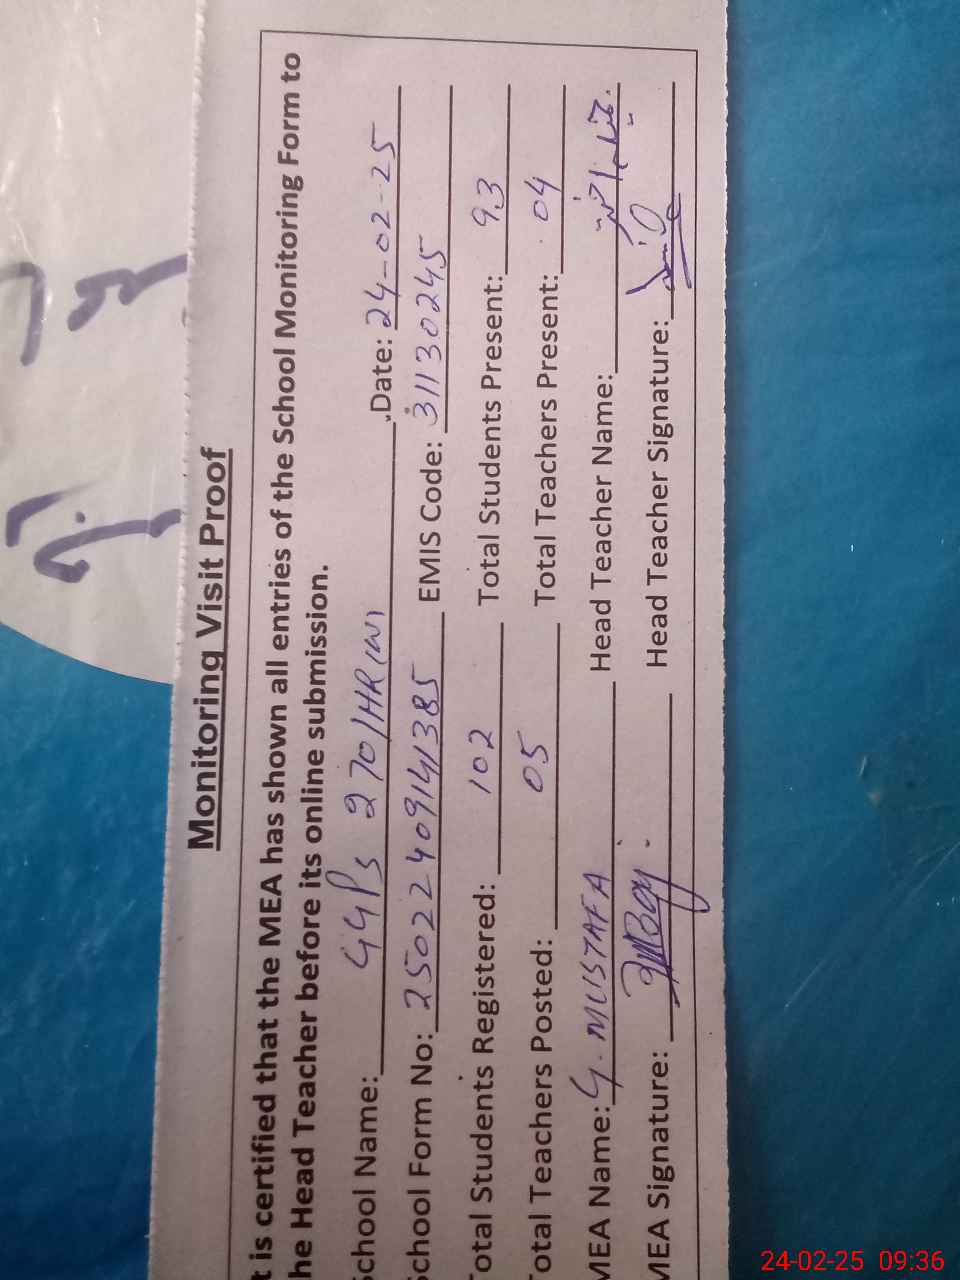 Monitoring Visit Proof
t is certified that the MEA has shown all entries of the School Monitoring Form to
he Head Teacher before its online submission.
School Name: GGPS 270/HR(W) Date: 24-02-25
School Form No: 25022409141385 EMIS Code: 31130245
Total Students Registered: 102 Total Students Present: 93
Total Teachers Posted: 05 Total Teachers Present: 04
MEA Name: G. MUSTAFA Head Teacher Name:
MEA Signature: Head Teacher Signature:
24-02-25 09:36